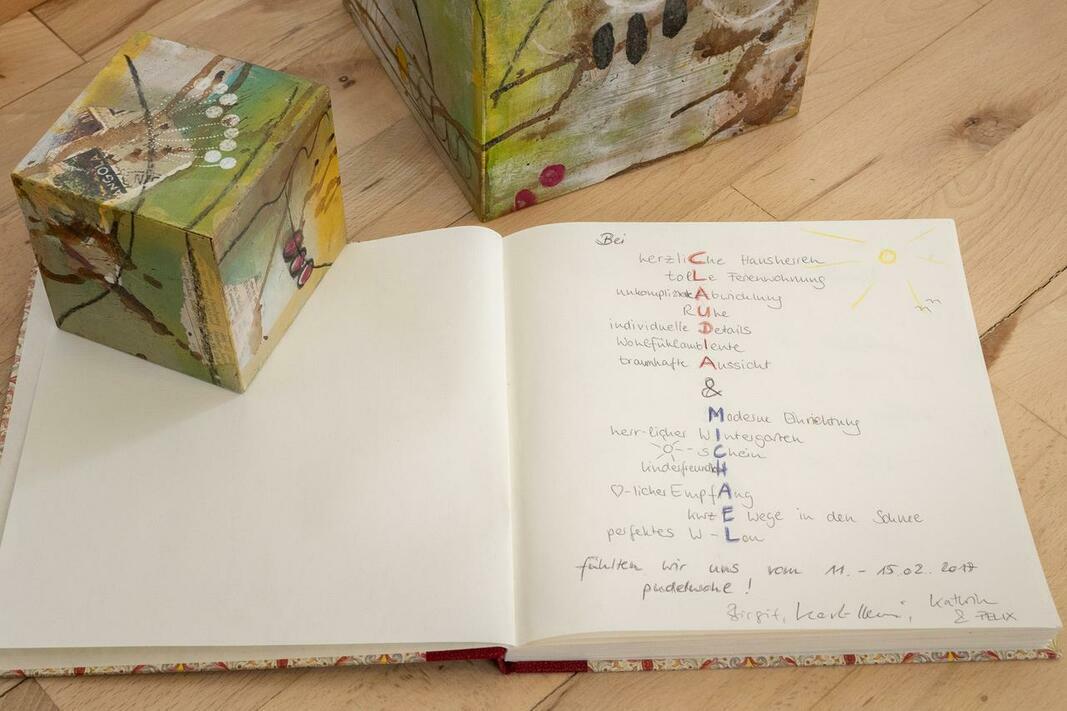 ANGO
Bei
herzliChe Hausherren
tolLe Ferienwohnung
unkomplizierte Abwicklung
RUhe
individuelle Details
WohlfühlambIente
traumhafte Aussicht
&
Moderne Einrichtung
herr-licher WIntergarten
-sChein
kinderfreundlicH
-licher EmpfAng
kurzE Wege in den Schnee
perfektes W-Lan
fühlten wir uns vom 11. - 15.02. 2017
pudelwohl !
Birgit, Karl-Heinz, Kathrin
& FELIX